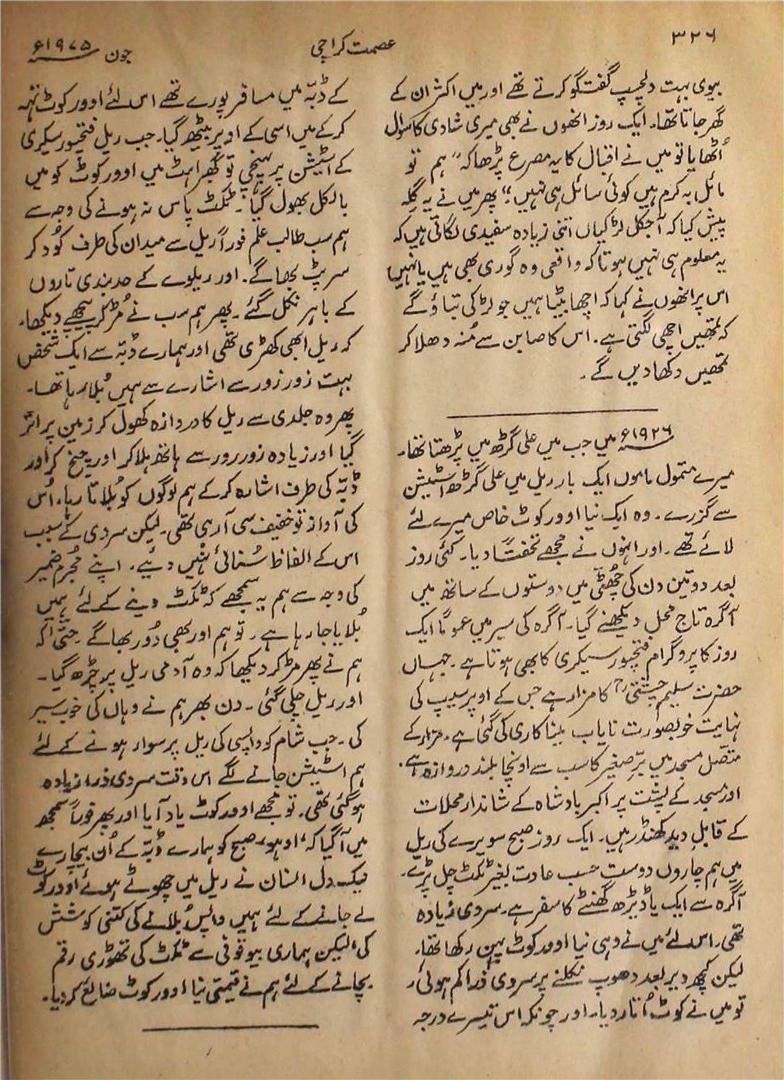 ۳۲۶
عصمت کراچی
جون ۱۹۷۵ء
بیوی بہت دلچسپ گفتگو کرتے تھے اور میں اکثر ان کے
گھر جاتا تھا۔ ایک روز انھوں نے بھی میری شادی کا سوال
اُٹھایا تو میں نے اقبال کا یہ مصرع پڑھا کہ "ہم تو
مائل بہ کرم ہیں کوئی سائل ہی نہیں"؛ پھر میں نے یہ گلہ
پیش کیا کہ آجکل لڑکیاں اتنی زیادہ سفیدی لگاتی ہیں کہ
یہ معلوم ہی نہیں ہوتا کہ واقعی وہ گوری بھی ہیں یا نہیں
اس پر انھوں نے کہا کہ اچھا بیٹا ہمیں جو لڑکی بتاؤ گے
کہ تمھیں اچھی لگتی ہے۔ اس کا صابن سے مُنہ دھلا کر
تمھیں دکھا دیں گے۔
۱۹۲۶ء میں جب میں علی گڑھ میں پڑھتا تھا۔
میرے متمول ماموں ایک بار ریل میں علی گڑھ اسٹیشن
سے گزرے۔ وہ ایک نیا اوورکوٹ خاص میرے لئے
لائے تھے۔ اور انہوں نے مجھے تحفتاً دیا۔ کئی روز
بعد دو تین دن کی چھٹی میں دوستوں کے ساتھ میں
آگرہ تاج محل دیکھنے گیا۔ آگرہ کی سیر میں عموماً ایک
روز کا پروگرام فتحپور سیکری کا بھی ہوتا ہے۔ جہاں
حضرت سلیم چشتیؒ کا مزار ہے جس کے اوپر سیپ کی
نہایت خوبصورت نایاب مینا کاری کی گئی ہے۔ مزار کے
متصل مسجد میں برِصغیر کا سب سے اونچا بلند دروازہ ہے۔
اور مسجد کے پشت پر اکبر بادشاہ کے شاندار محلات
کے قابلِ دید کھنڈر ہیں۔ ایک روز صبح سویرے کی ریل
میں ہم چاروں دوست حسب عادت بغیر ٹکٹ چل پڑے۔
آگرہ سے ایک یا ڈیڑھ گھنٹے کا سفر ہے۔ سردی زیادہ
تھی۔ اس لئے میں نے وہی نیا اوورکوٹ پہن رکھا تھا۔
لیکن کچھ دیر بعد دھوپ نکلنے پر سردی ذرا کم ہوئی،
تو میں نے کوٹ اُتار دیا۔ اور چونکہ اس تیسرے درجہ
کے ڈبّہ میں مسافر پورے تھے اس لئے اوورکوٹ تہہ
کر کے میں اسی کے اوپر بیٹھ گیا۔ جب ریل فتحپور سیکری
کے اسٹیشن پر پہنچی تو گھبراہٹ میں اوورکوٹ کو میں
بالکل بھول گیا۔ ٹکٹ پاس نہ ہونے کی وجہ سے
ہم سب طالب علم فوراً ریل سے میدان کی طرف کُود کر
سرپٹ بھاگے۔ اور ریلوے کے حد بندی تاروں
کے باہر نکل گئے۔ پھر ہم سب نے مُڑ کر پیچھے دیکھا۔
کہ ریل ابھی کھڑی تھی اور ہمارے ڈبہ سے ایک شخص
بہت زور زور سے اشارے سے ہمیں بُلا رہا تھا۔
پھر وہ جلدی سے ریل کا دروازہ کھول کر زمین پر اتر
گیا اور زیادہ زور زور سے ہاتھ ہلا کر اور چیخ کر اور
ڈبّہ کی طرف اشارہ کر کے ہم لوگوں کو بُلاتا رہا۔ اُس
کی آواز تو خفیف سی آ رہی تھی۔ لیکن سردی کے سبب
اس کے الفاظ سُنائی نہیں دیئے۔ اپنے مجرم ضمیر
کی وجہ سے ہم یہ سمجھے کہ ٹکٹ دینے کے لئے ہمیں
بُلایا جا رہا ہے۔ تو ہم اور بھی دُور بھاگے۔ حتیٰ کہ
ہم نے پھر مڑ کر دیکھا کہ وہ آدمی ریل پر چڑھ گیا۔
اور ریل چلی گئی۔ دن بھر ہم نے وہاں کی خوب سیر
کی۔ جب شام کو واپسی کی ریل پر سوار ہونے کے لئے
ہم اسٹیشن جانے لگے اس وقت سردی ذرا زیادہ
ہو گئی تھی۔ تو مجھے اوورکوٹ یاد آیا اور پھر فوراً سمجھ
میں آ گیا کہ، اوہو، صبح کو ہمارے ڈبّہ کے اُن بیچارے
نیک دل انسان نے ریل میں چھوٹے ہوئے اوورکوٹ
لے جانے کے لئے ہمیں واپس بُلانے کی کتنی کوشش
کی، لیکن ہماری بیوقوفی سے ٹکٹ کی تھوڑی رقم
بچانے کے لئے ہم نے قیمتی نیا اوورکوٹ ضائع کر دیا۔